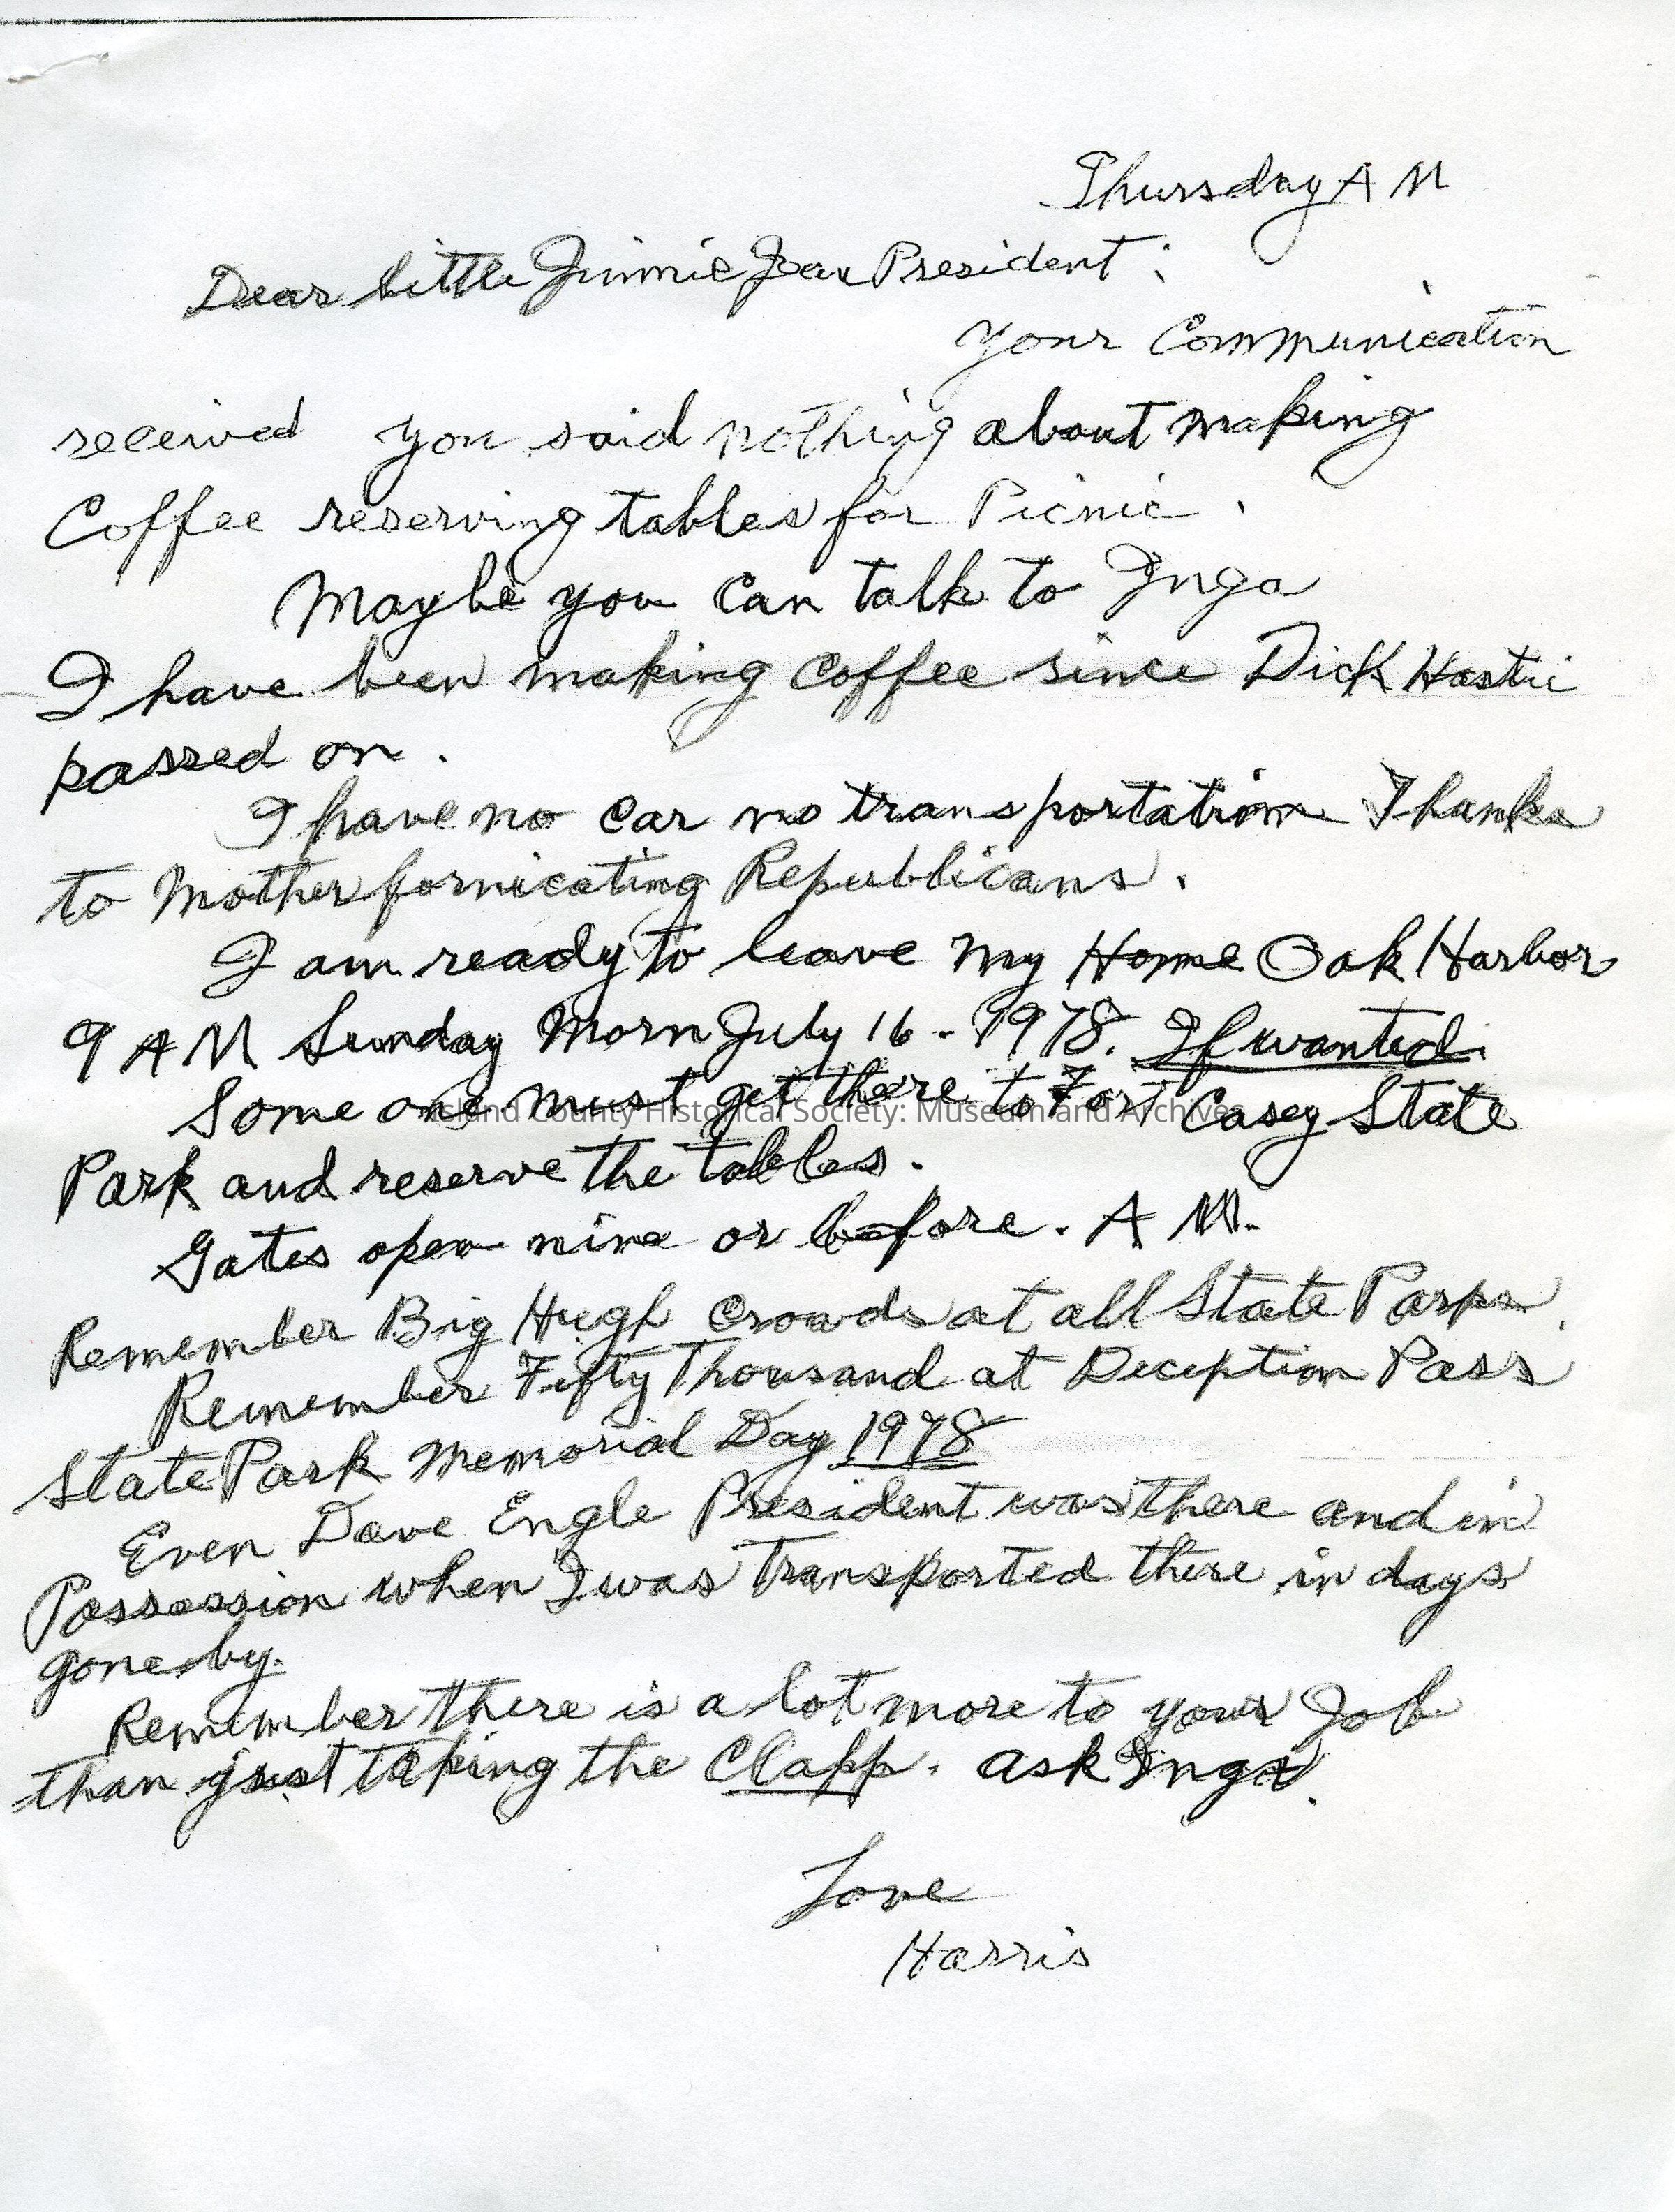 Thursday A M
Dear little Jimmie Jean President :
Your Communication
received you said nothing about making
Coffee reserving tables for Picnic .
Maybe you can talk to Inga
I have been making coffee since Dick Hastie
passed on .
I have no car no transportation Thanks
to Mother fornicating Republicans .
I am ready to leave my Home Oak Harbor
9 A M Sunday Morn July 16 - 1978. If wanted.
Some one must get there to Fort Casey State
Island County Historical Society: Museum and Archives
Park and reserve the tables .
Gates open nine or before . A M.
Remember Big Hugh Crowds at all State Parks .
Remember Fifty Thousand at Deception Pass
State Park Memorial Day 1978
Even Dave Engle President was there and in
Possession when I was Transported there in days
gone by.
Remember there is a lot more to your Job
than just taking the Clapp . ask Inga .
Love
Harris